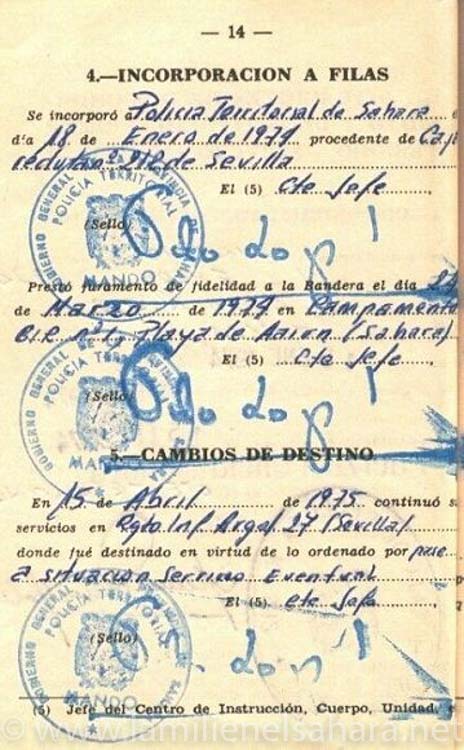 — 14 —
4.—INCORPORACION A FILAS
Se incorporó a Policia Territorial de Sahara
día 18 de Enero de 1974 procedente de Caja
recluta nº 212 de Sevilla
El (5) Cte Jefe
(Sello)
GOBIERNO GENERAL PROVINCIA DE SAHARA
POLICIA TERRITORIAL
MANDO
Prestó juramento de fidelidad a la Bandera el día 24
de Marzo de 1974 en Campamento
B.I.R nº 1, Playa de Aaiun (Sahara)
El (5) Cte Jefe
(Sello)
GOBIERNO GENERAL
POLICIA TERRITORIAL
5.—CAMBIOS DE DESTINO
En 15 de Abril de 1975 continuó s
servicios en Rgto Inf Argel 27 (Sevilla)
donde fué destinado en virtud de lo ordenado por pase
a situacion Servicio Eventual
El (5) Cte Jefe
(Sello)
GOBIERNO GENERAL
POLICIA TERRITORIAL
MANDO
(5) Jefe del Centro de Instrucción, Cuerpo, Unidad,
© www.lamilienelsahara.net